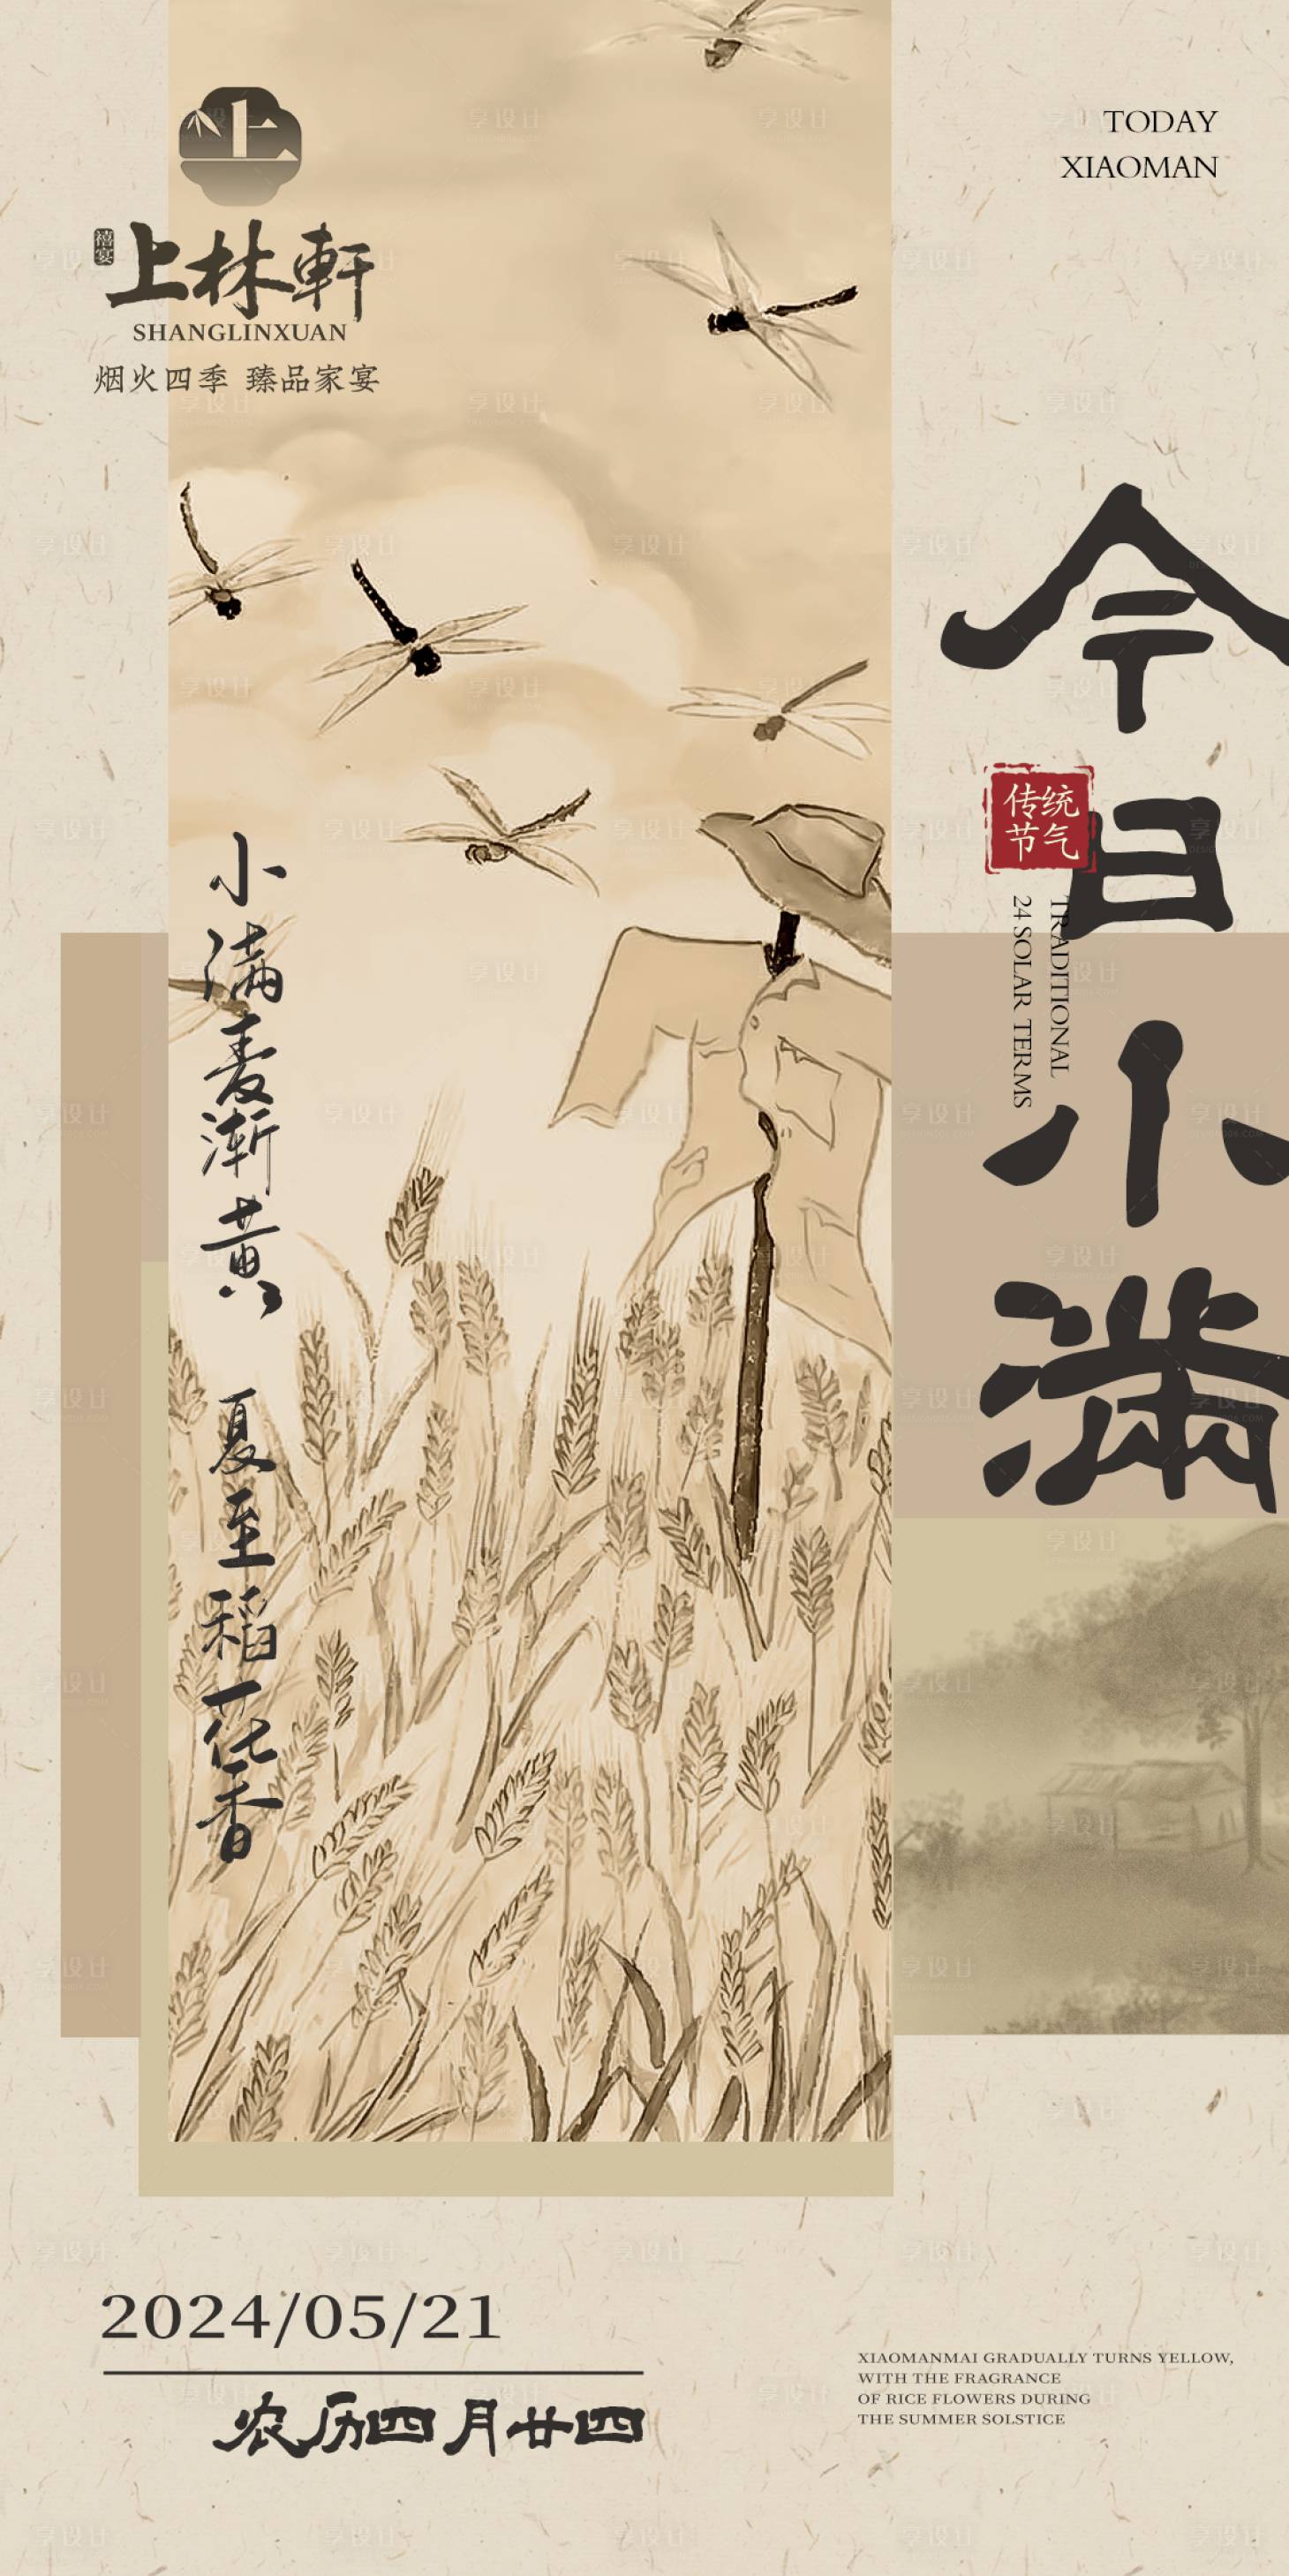 上
禧宴
上林軒
SHANGLINXUAN
烟火四季 臻品家宴
TODAY
XIAOMAN
今日小满
传统
节气
TRADITIONAL
24 SOLAR TERMS
小满麦渐黄
夏至稻花香
2024/05/21
农历四月廿四
XIAOMANMAI GRADUALLY TURNS YELLOW,
WITH THE FRAGRANCE
OF RICE FLOWERS DURING
THE SUMMER SOLSTICE
享设计